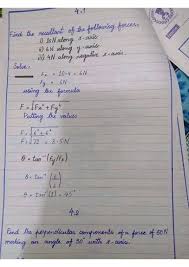 4.1
Find the resultant of the following forces.
i) 10N along x-axis
ii) 6N along y-axis
iii) 4N along negative x-axis.
Solve:
Fx = 10-4 = 6N
Fy = 6N
using the formula
F = √Fx² + Fy²
Putting the values
F = √6² + 6²
F = √72 = 8.5N
θ = tan⁻¹ (Fy/Fx)
θ = tan⁻¹ (6/6)
θ = tan⁻¹ (1) = 45°
4.2
Find the perpendicular components of a force of 50N
making an angle of 30 with x-axis.